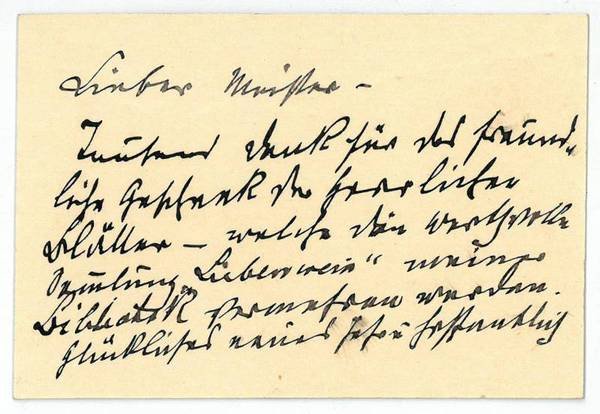 Lieber Meister –
Tausend Dank für das freund-
liche Geschenk der herrlichen
Blätter – welche die werthvolle
Sammlung „Liebenwein“ meiner
Bibliothek vermehren werden.
Glückliches neues Jahr